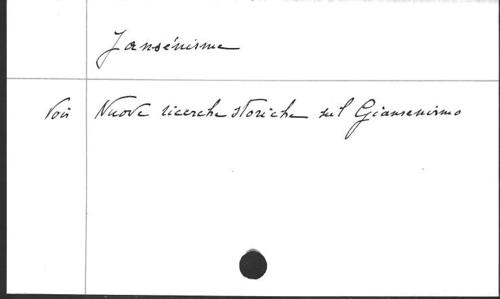 Jansénisme
Voir Nuove ricerche storiche sul Giansenismo